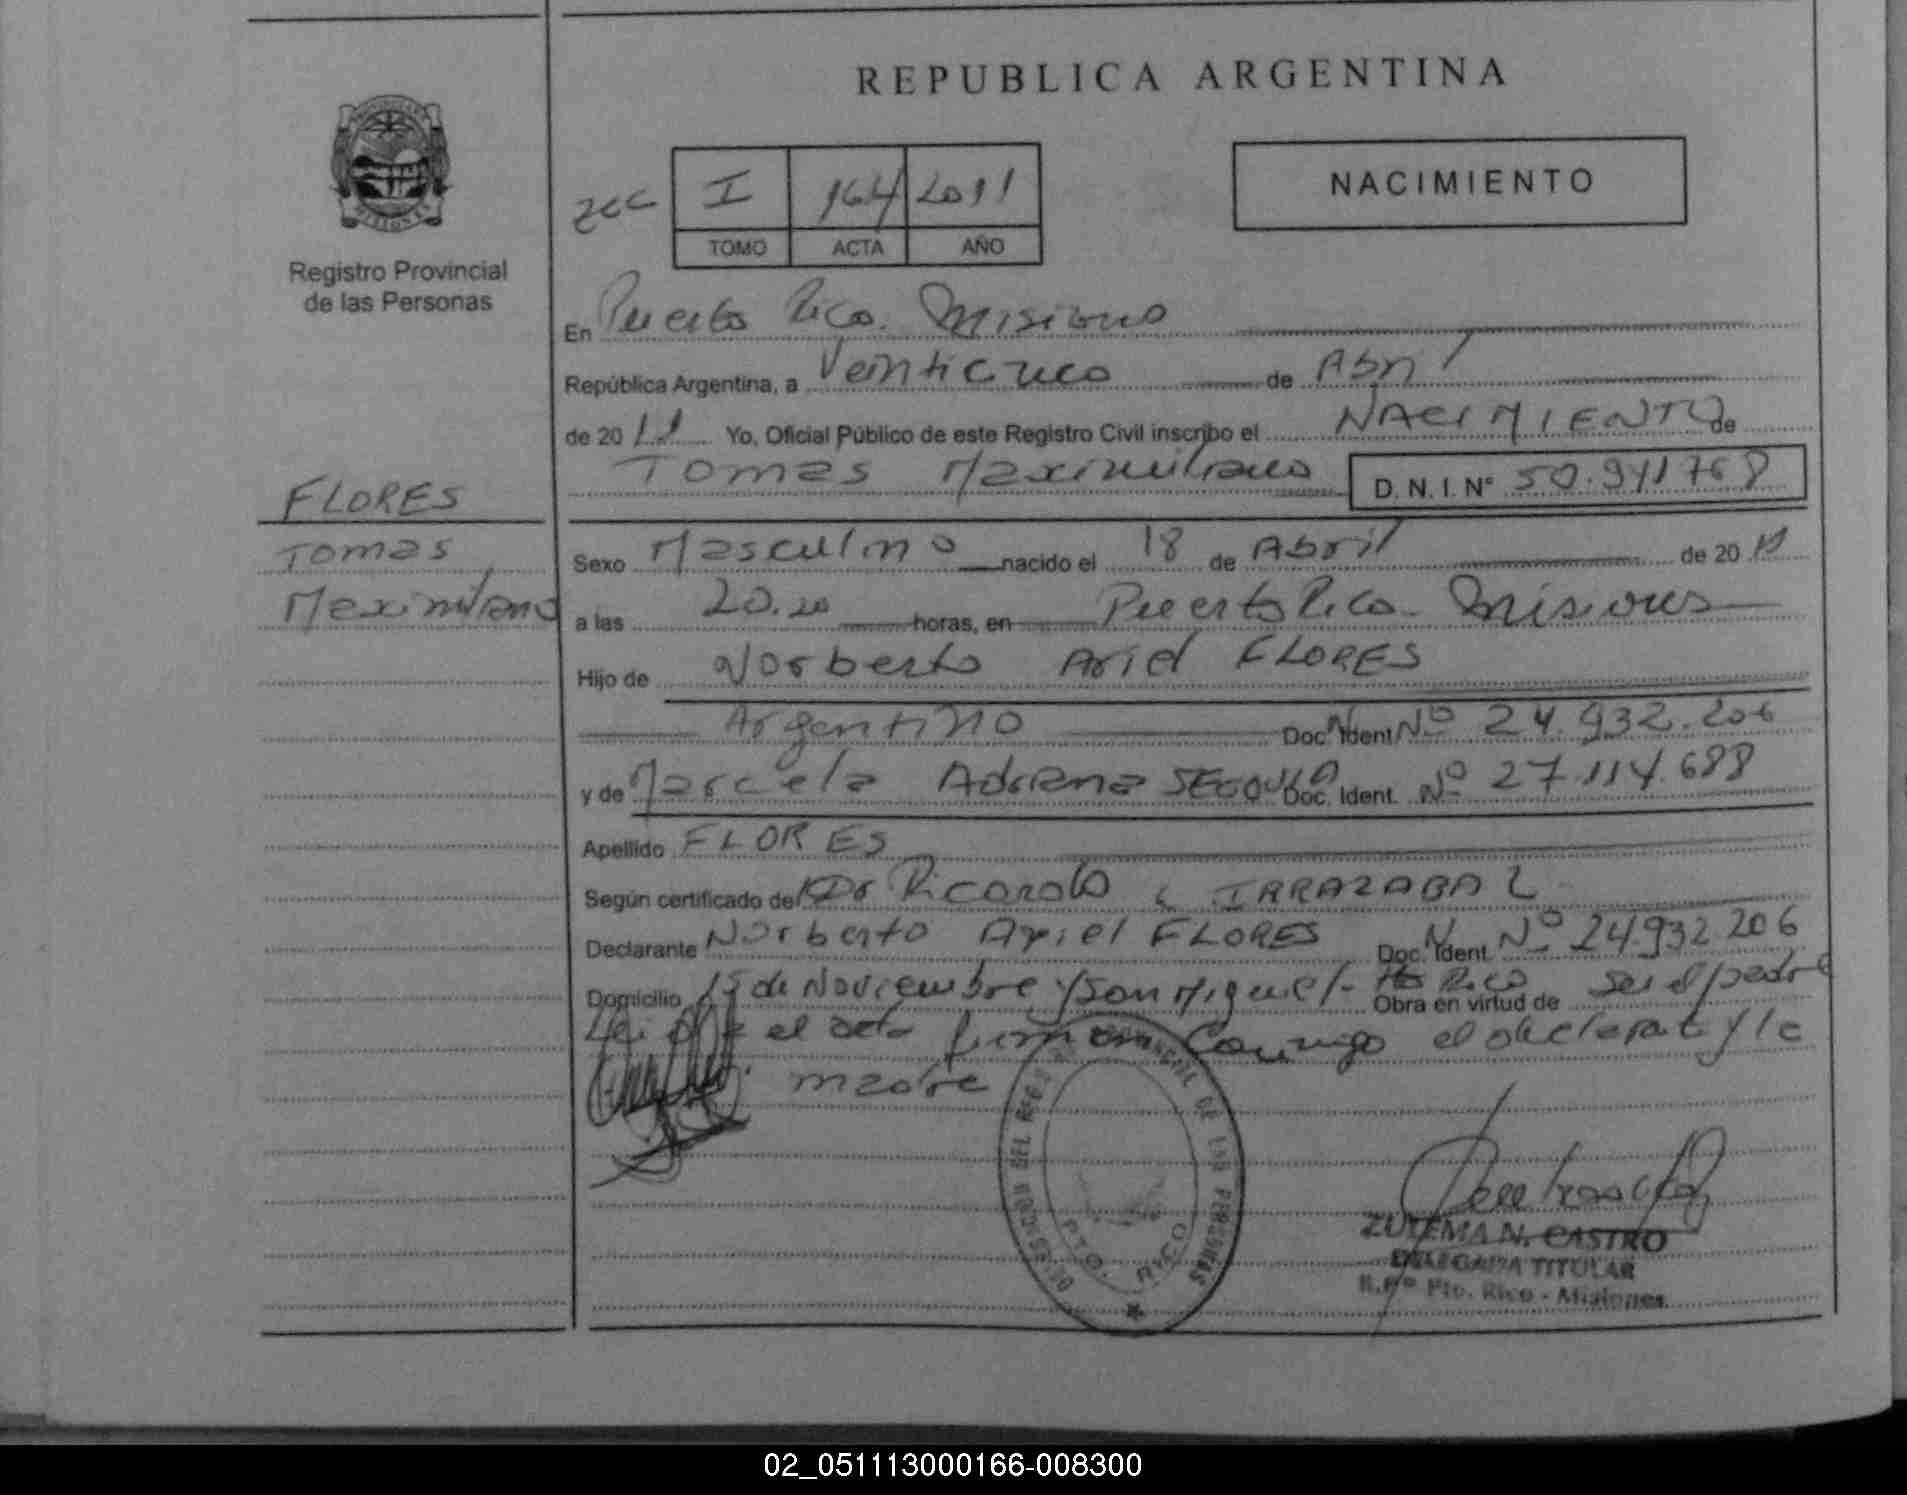 REPUBLICA ARGENTINA
NACIMIENTO
I 164 2011
TOMO ACTA AÑO
Registro Provincial
de las Personas
En Puerto Rico. Misiones
República Argentina, a Veinticinco de Abril
de 2011 Yo, Oficial Público de este Registro Civil inscribo el NACIMIENTO de
Tomas Maximiliano D. N. I. N° 50.941768
FLORES
Tomas
Maximiliano
Sexo Masculino nacido el 18 de Abril de 2011
a las 20.20 horas, en Puerto Rico - Misiones
Hijo de Norberto Ariel FLORES
Argentino Doc. Ident. Nº 24.932.206
y de Marcela Adriana SEGOVIA Doc. Ident. Nº 27.114.688
Apellido FLORES
Según certificado de Dr Ricardo IRRAZABAL
Declarante Norberto Ariel FLORES Doc. Ident. Nº 24.932.206
Domicilio de Noviembre y San Miguel - Pto Rico Obra en virtud de ser el padre
Leida el acta firman conmigo el declarante y la
madre
ZULEMA N. CASTRO
DELEGADA TITULAR
Pto. Rico - Misiones
02_051113000166-008300